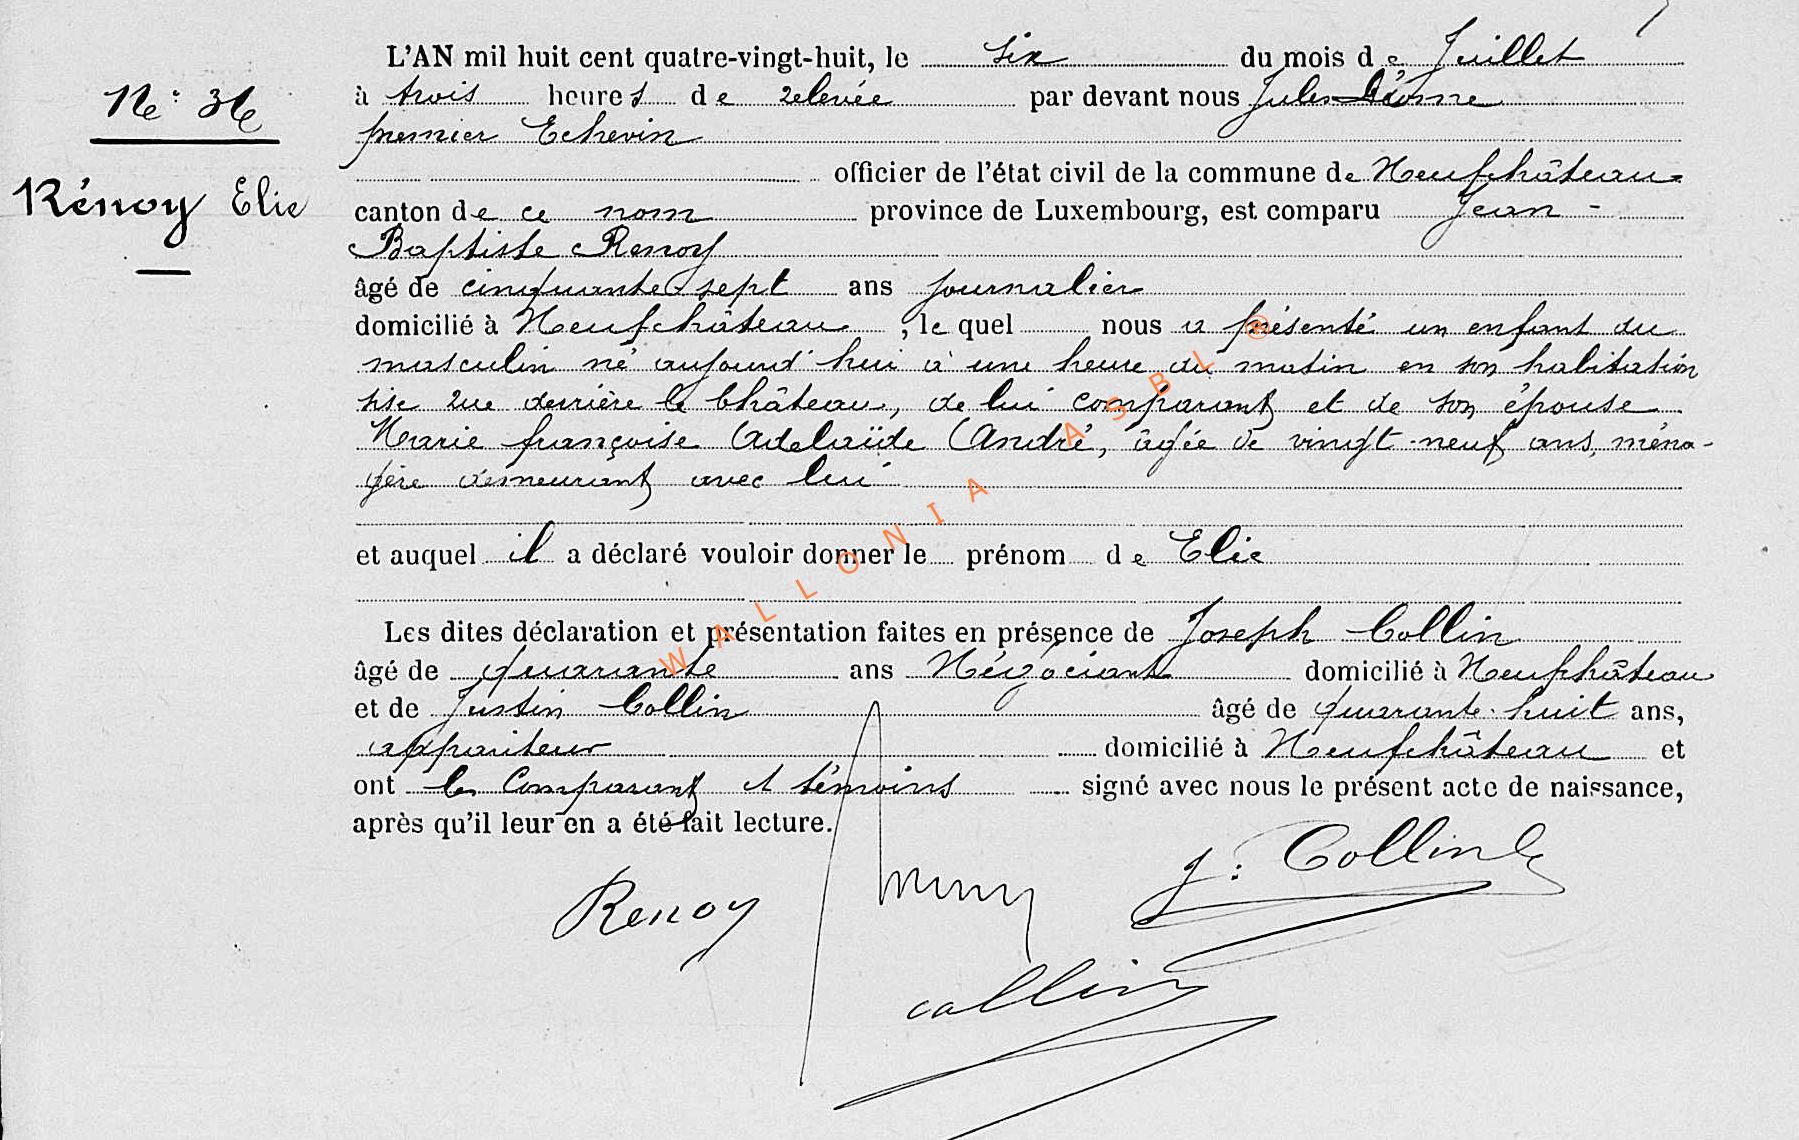 L'AN mil huit cent quatre-vingt-huit, le six du mois de Juillet
à trois heures de relevée par devant nous Jules
premier Echevin
officier de l'état civil de la commune de Neufchâteau
canton de ce nom province de Luxembourg, est comparu Jean-
Baptiste Renoy
âgé de cinquante sept ans journalier
domicilié à Neufchâteau, lequel nous a présenté un enfant du
masculin né aujourd'hui à une heure du matin en son habitation
sise rue derrière le Château, de lui comparant et de son épouse
Marie françoise Adelaïde André, âgée de vingt-neuf ans, ména-
gère demeurant avec lui
et auquel il a déclaré vouloir donner le prénom de Elie
Les dites déclaration et présentation faites en présence de Joseph Collin
âgé de quarante ans Négociant domicilié à Neufchâteau
et de Justin Collin âgé de quarante-huit ans,
appariteur domicilié à Neufchâteau et
ont les Comparant et témoins signé avec nous le présent acte de naissance,
après qu'il leur en a été fait lecture.
Renoy
J: Collin
collin
N°: 36
Rénoy Elie
WALLONIA ASBL ®